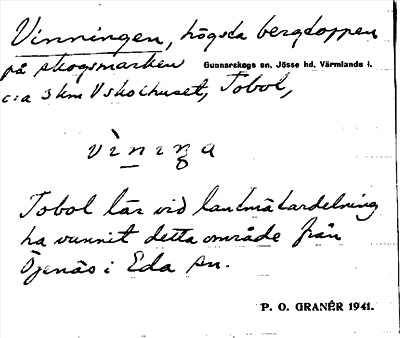 Vinningen, högsta bergstoppen
på skogsmarken Gunnarskogs sn, Jösse hd, Värmlands l.
c:a 3 km V skolhuset, Tobol,
Tobol lär vid lantmätardelning
ha vunnit detta område från
Öjenäs i Eda sn.
P. O. GRANÉR 1941.